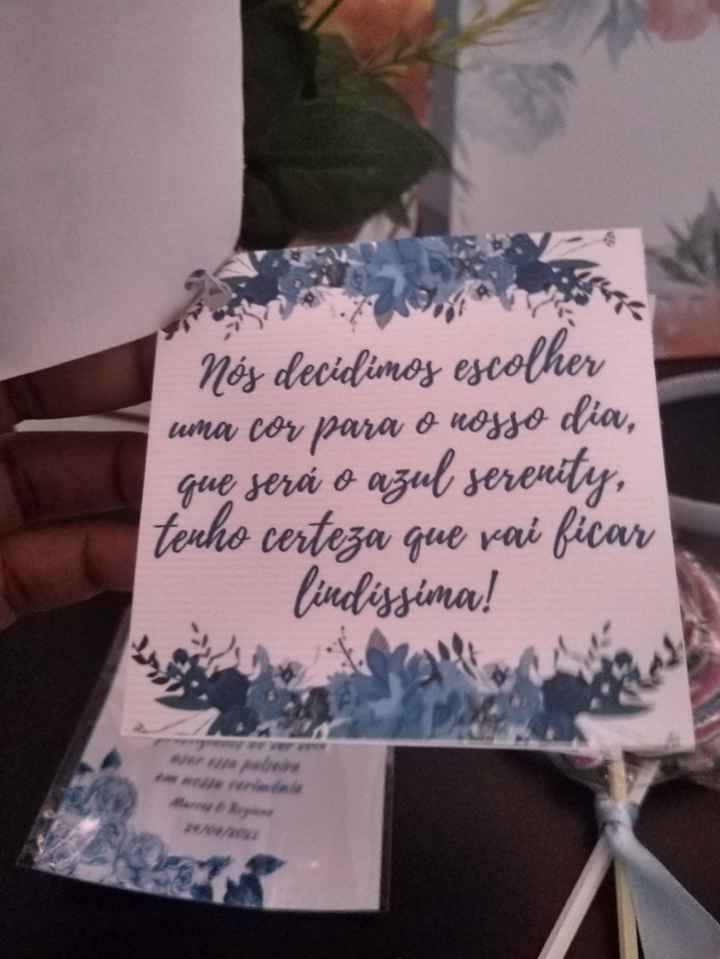 Nós decidimos escolher
uma cor para o nosso dia,
que será o azul serenity,
tenho certeza que vai ficar
lindíssima!
usar essa pulseira
em nossa cerimônia